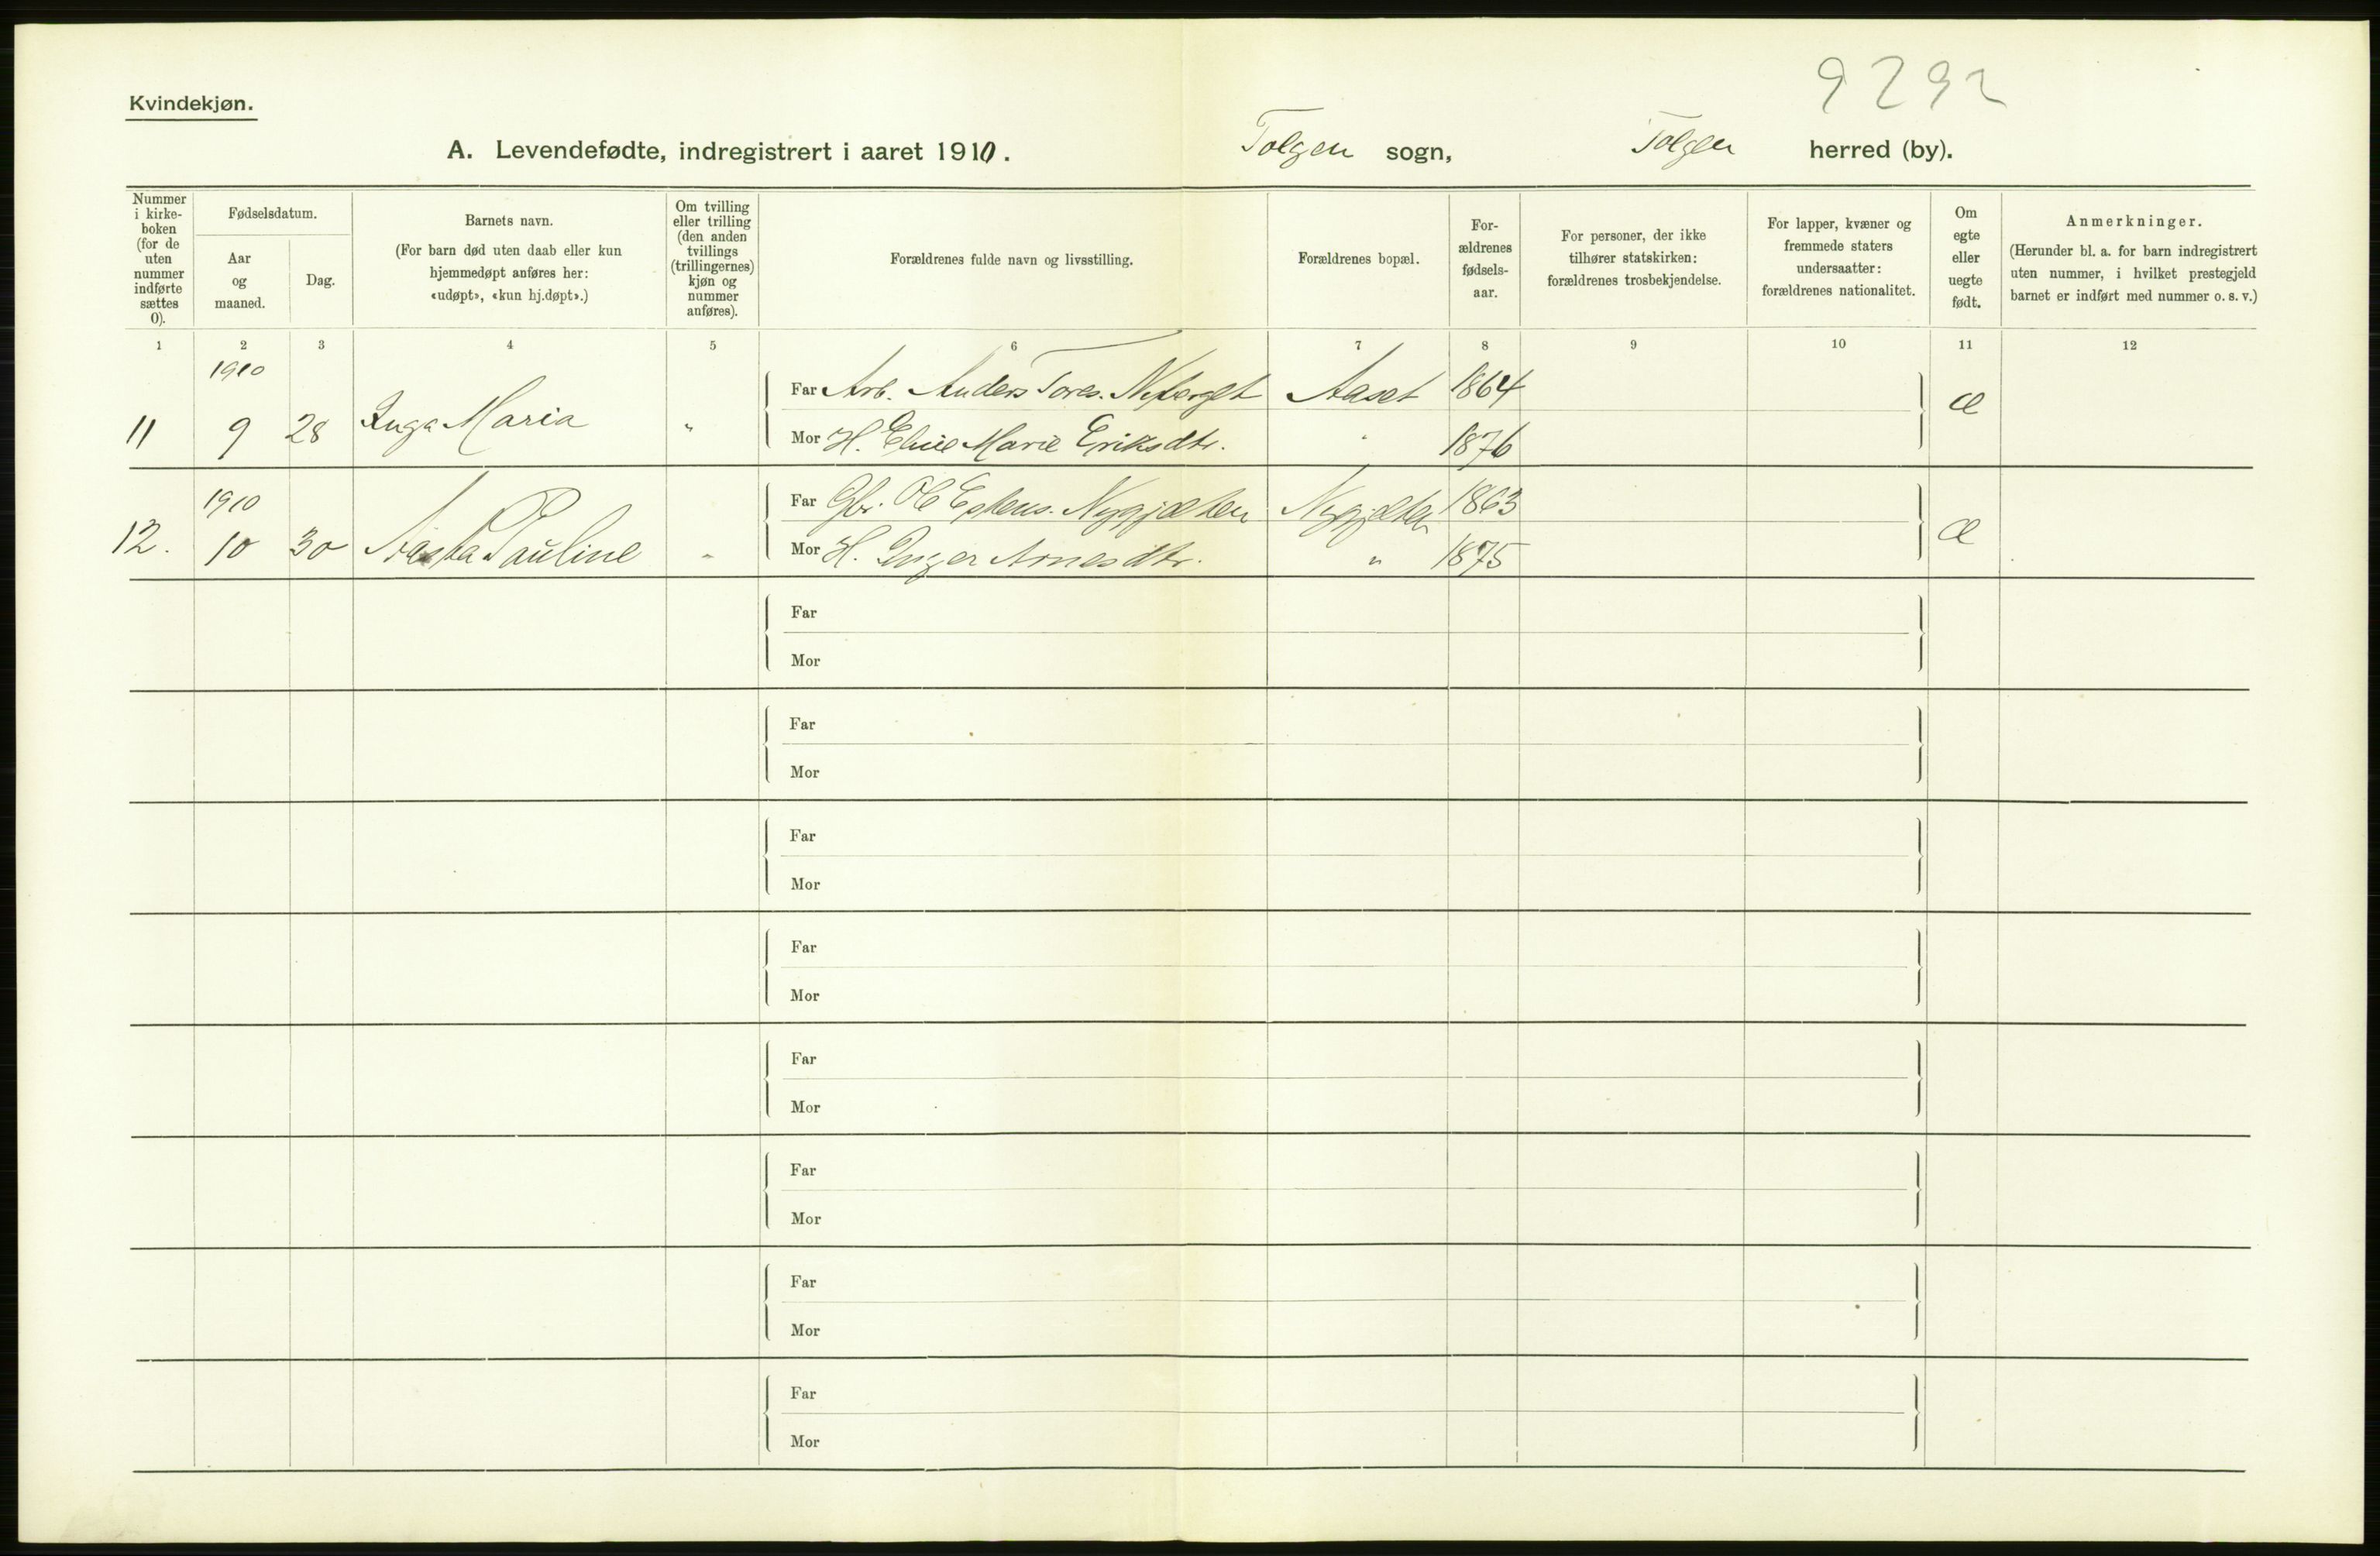 9292
Kvindekjøn.
A. Levendefødte, indregistrert i aaret 1910. Tolgen sogn, Tolgen herred (by).
Nummer
i kirke-
boken
(for de
uten
nummer
indførte
sættes
0).
Fødselsdatum.
Aar
og
maaned.
Dag.
Barnets navn.
(For barn død uten daab eller kun
hjemmedøpt anføres her:
«udøpt», «kun hj.døpt».)
Om tvilling
eller trilling
(den anden
tvillings
(trillingernes)
kjøn og
nummer
anføres).
Forældrenes fulde navn og livsstilling.
Forældrenes bopæl.
For-
ældrenes
fødsels-
aar.
For personer, der ikke
tilhører statskirken:
forældrenes trosbekjendelse.
For lapper, kvæner og
fremmede staters
undersaatter:
forældrenes nationalitet.
Om
egte
eller
uegte
født.
Anmerkninger.
(Herunder bl. a. for barn indregistrert
uten nummer, i hvilket prestegjeld
barnet er indført med nummer o. s. v.)
1 2 3 4 5 6 7 8 9 10 11 12
1910
Far Arb. Anders Tores. Aaset 1864
11 9 28 Inga Maria " æ
Mor H. Marie Eriksdtr. " 1876
1910
Far Gbr. Ole Estens. Nygjelten Nygjelten 1863
12. 10 30 Aasta Pauline " æ
Mor H. Inger Arnesdtr. " 1875
Far
Mor
Far
Mor
Far
Mor
Far
Mor
Far
Mor
Far
Mor
Far
Mor
Far
Mor